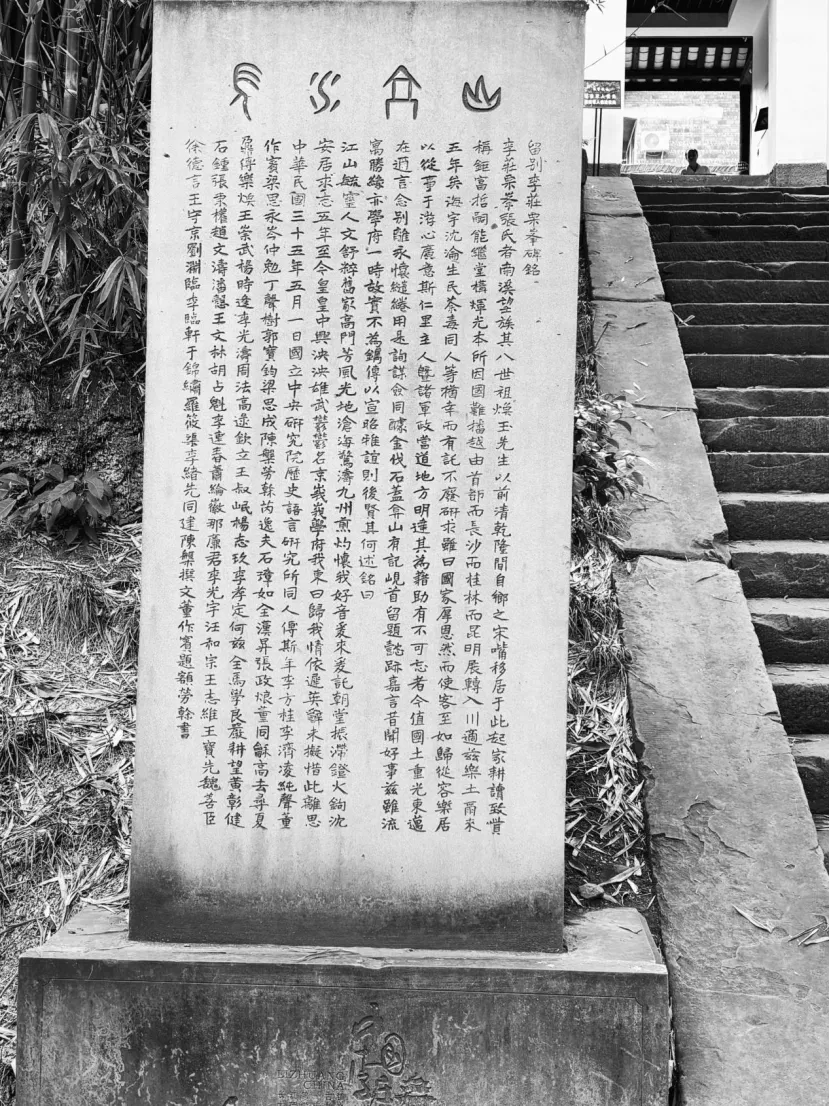 山高水長
留別李莊栗峯碑銘
李莊栗峯張氏者南溪望族其八世祖煥玉先生以前清乾隆間自鄉之宋嘴移居于此起家耕讀致貲
稱鉅富哲嗣能繼堂構輝光本所因國難播越由首都而長沙而桂林而昆明展轉入川適茲樂土爾來
五年矣海宇沈淪生民荼毒同人等猶幸而有託不廢研求雖曰國家厚恩然而使客至如歸從容樂居
以從事于游心廣意斯仁里主人暨諸軍政當道地方明達其為藉助有不可忘者今值國土重光東邁
在邇言念別離永懷繾綣用是詢謀僉同醵金伐石蓋弇山有記峴首留題懿跡嘉言昔聞好事茲雖流
寓勝緣亦學府一時故實不為鐫傳以宣昭雅誼則後賢其何述銘曰
江山毓靈人文舒粹舊家高門芳風光地滄海驚濤九州煎灼懷我好音爰來爰託朝堂振滯燈火鉤沈
安居求志五年至今皇皇中興泱泱雄武鬱鬱名京峩峩學府我東曰歸我情依遲英辭未擬惜此離思
中華民國三十五年五月一日國立中央研究院歷史語言研究所同人傅斯年李方桂李濟凌純聲董
作賓梁思永岑仲勉丁聲樹郭寶鈞梁思成陳槃勞榦芮逸夫石璋如全漢昇張政烺董同龢高去尋夏
鼐傅樂煥王崇武楊時逢李光濤周法高逯欽立王叔岷楊志玖李孝定何茲全馬學良嚴耕望黃彰健
石鍾張秉權趙文濤潘慤王文林胡占魁李連春蕭綸徽那廉君李光宇汪和宗王志維王寶先魏善臣
徐德言王守京劉淵臨李臨軒于錦繡羅筱蕖李緒先同建陳槃撰文董作賓題額勞榦書
LIZHUANG
CHINA